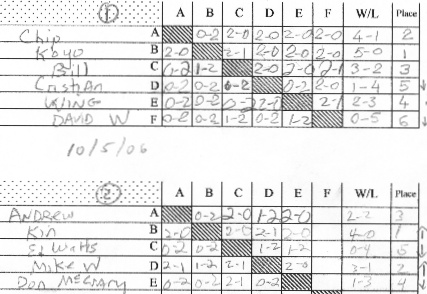 ① A B C D E F W/L Place
Chip A 0-2 2-0 2-0 2-0 2-0 4-1 2
Koyo B 2-0 2-1 2-0 2-0 2-0 5-0 1
Bill C 0-2 1-2 2-0 2-0 2-1 3-2 3
Cristian D 0-2 0-2 0-2 0-2 2-0 1-4 5 ↓
E 0-2 0-2 0-2 2-0 2-1 2-3 4
DAVID W F 0-2 0-2 1-2 0-2 1-2 0-5 6 ↓
10/5/06
② A B C D E F W/L Place
ANDREW A 0-2 2-0 1-2 2-0 2-2 3
Kin B 2-0 2-0 2-1 2-0 4-0 1 ↑
C 0-2 0-2 1-2 1-2 0-4 5 ↓
Mike W D 2-1 1-2 2-1 2-0 3-1 2 ↑
Don E 0-2 0-2 2-1 0-2 1-3 4 ↓